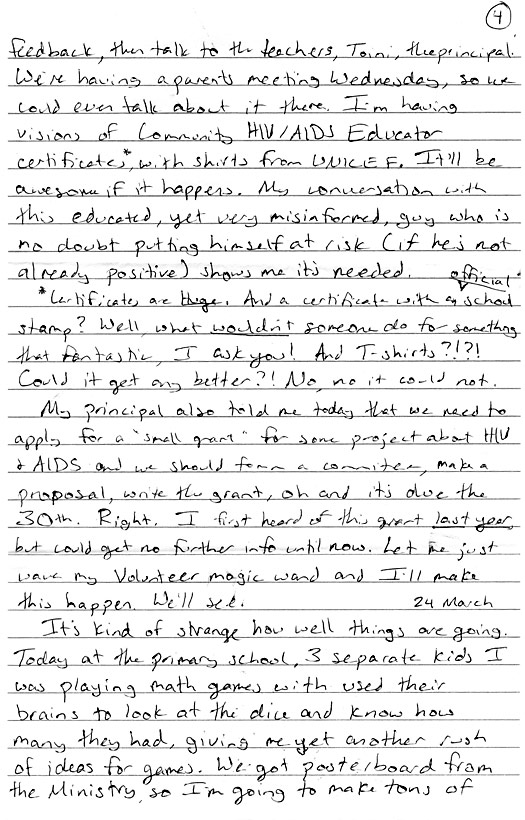 4
feedback, then talk to the teachers, Toini, the principal.
We're having a parents meeting Wednesday, so we
could even talk about it there. I'm having
visions of Community HIV/AIDS Educator
certificates*, with shirts from UNICEF. It'll be
awesome if it happens. My conversation with
this educated, yet very misinformed, guy who is
no doubt putting himself at risk (if he's not
already positive) shows me it's needed.
official
*Certificates are huge. And a certificate with a school
stamp? Well, what wouldn't someone do for something
that fantastic, I ask you! And T-shirts?!?!
Could it get any better?! No, no it could not.
My principal also told me today that we need to
apply for a "small grant" for some project about HIV
& AIDS and we should form a commitee, make a
proposal, write the grant, oh and it's due the
30th. Right. I first heard of this grant last year
but could get no further info until now. Let me just
wave my Volunteer magic wand and I'll make
this happen. We'll see.
24 March
It's kind of strange how well things are going.
Today at the primary school, 3 separate kids I
was playing math games with used their
brains to look at the dice and know how
many they had, giving me yet another rush
of ideas for games. We got posterboard from
the Ministry, so I'm going to make tons of